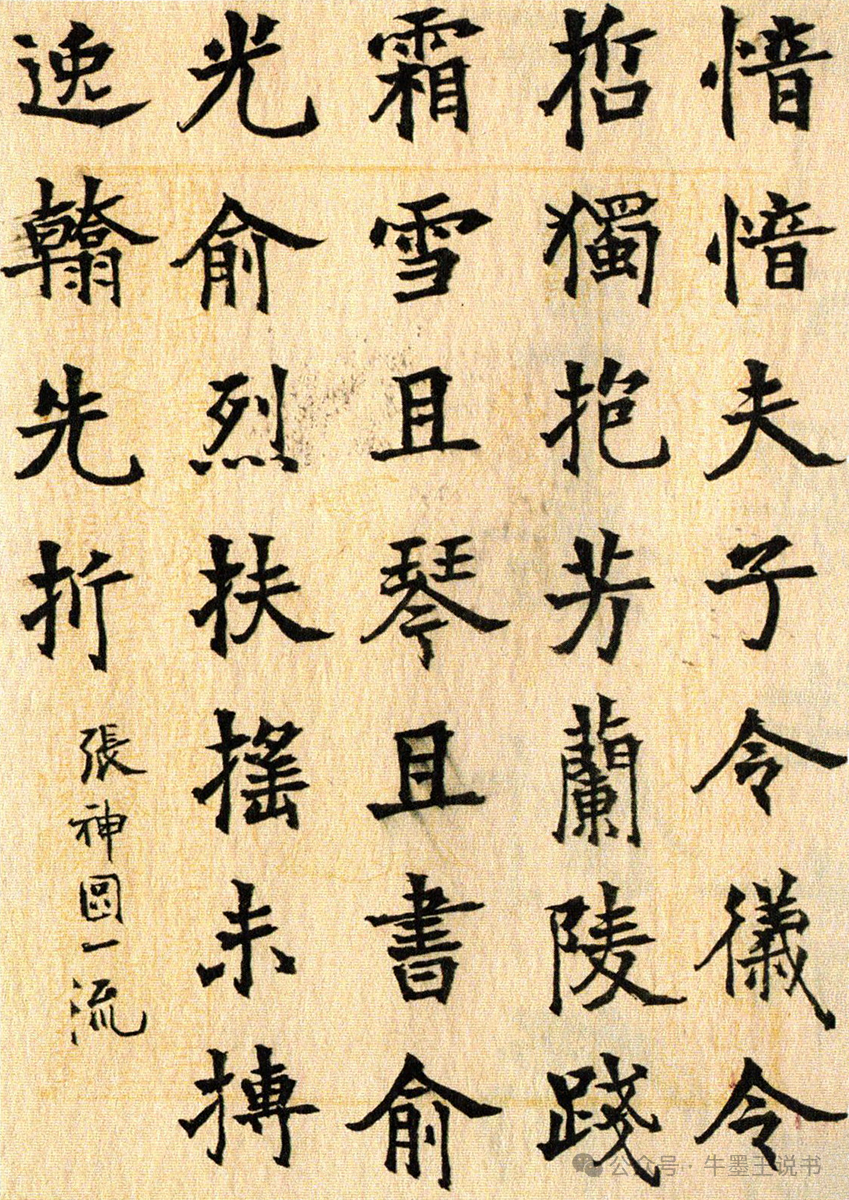 愔愔夫子令儀令
哲獨抱芳蘭陵踐
霜雪且琴且書俞
光俞烈扶搖未摶
逸翰先折
張神圆一流
公众号·牛墨王说书